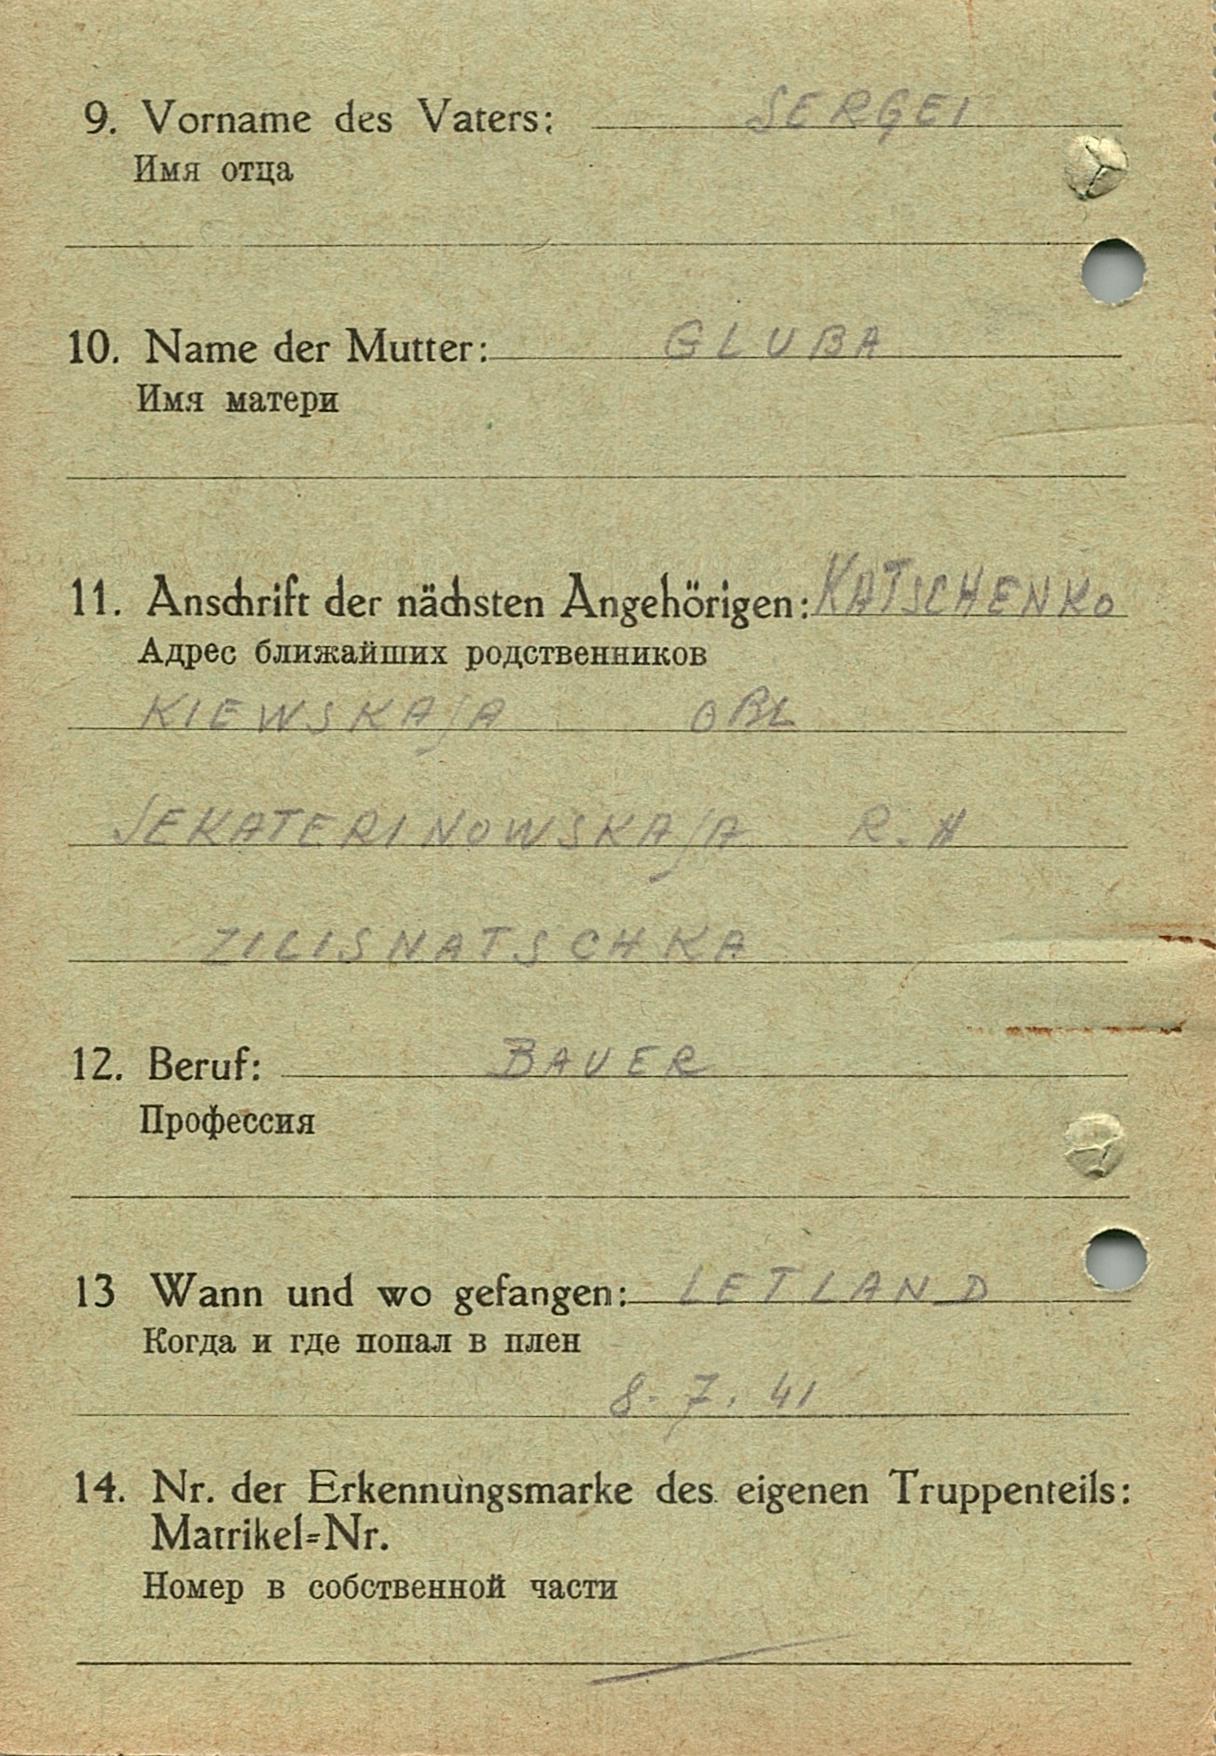 9. Vorname des Vaters: SERGEI
Имя отца
10. Name der Mutter: GLUBA
Имя матери
11. Anschrift der nächsten Angehörigen: KATSCHENKO
Адрес ближайших родственников
KIEWSKAJA OBL
JEKATERINOWSKAJA R.H
ZILISNATSCHKA
12. Beruf: BAUER
Профессия
13 Wann und wo gefangen: LETLAND
Когда и где попал в плен
8.7.41
14. Nr. der Erkennungsmarke des eigenen Truppenteils:
Matrikel=Nr.
Номер в собственной части